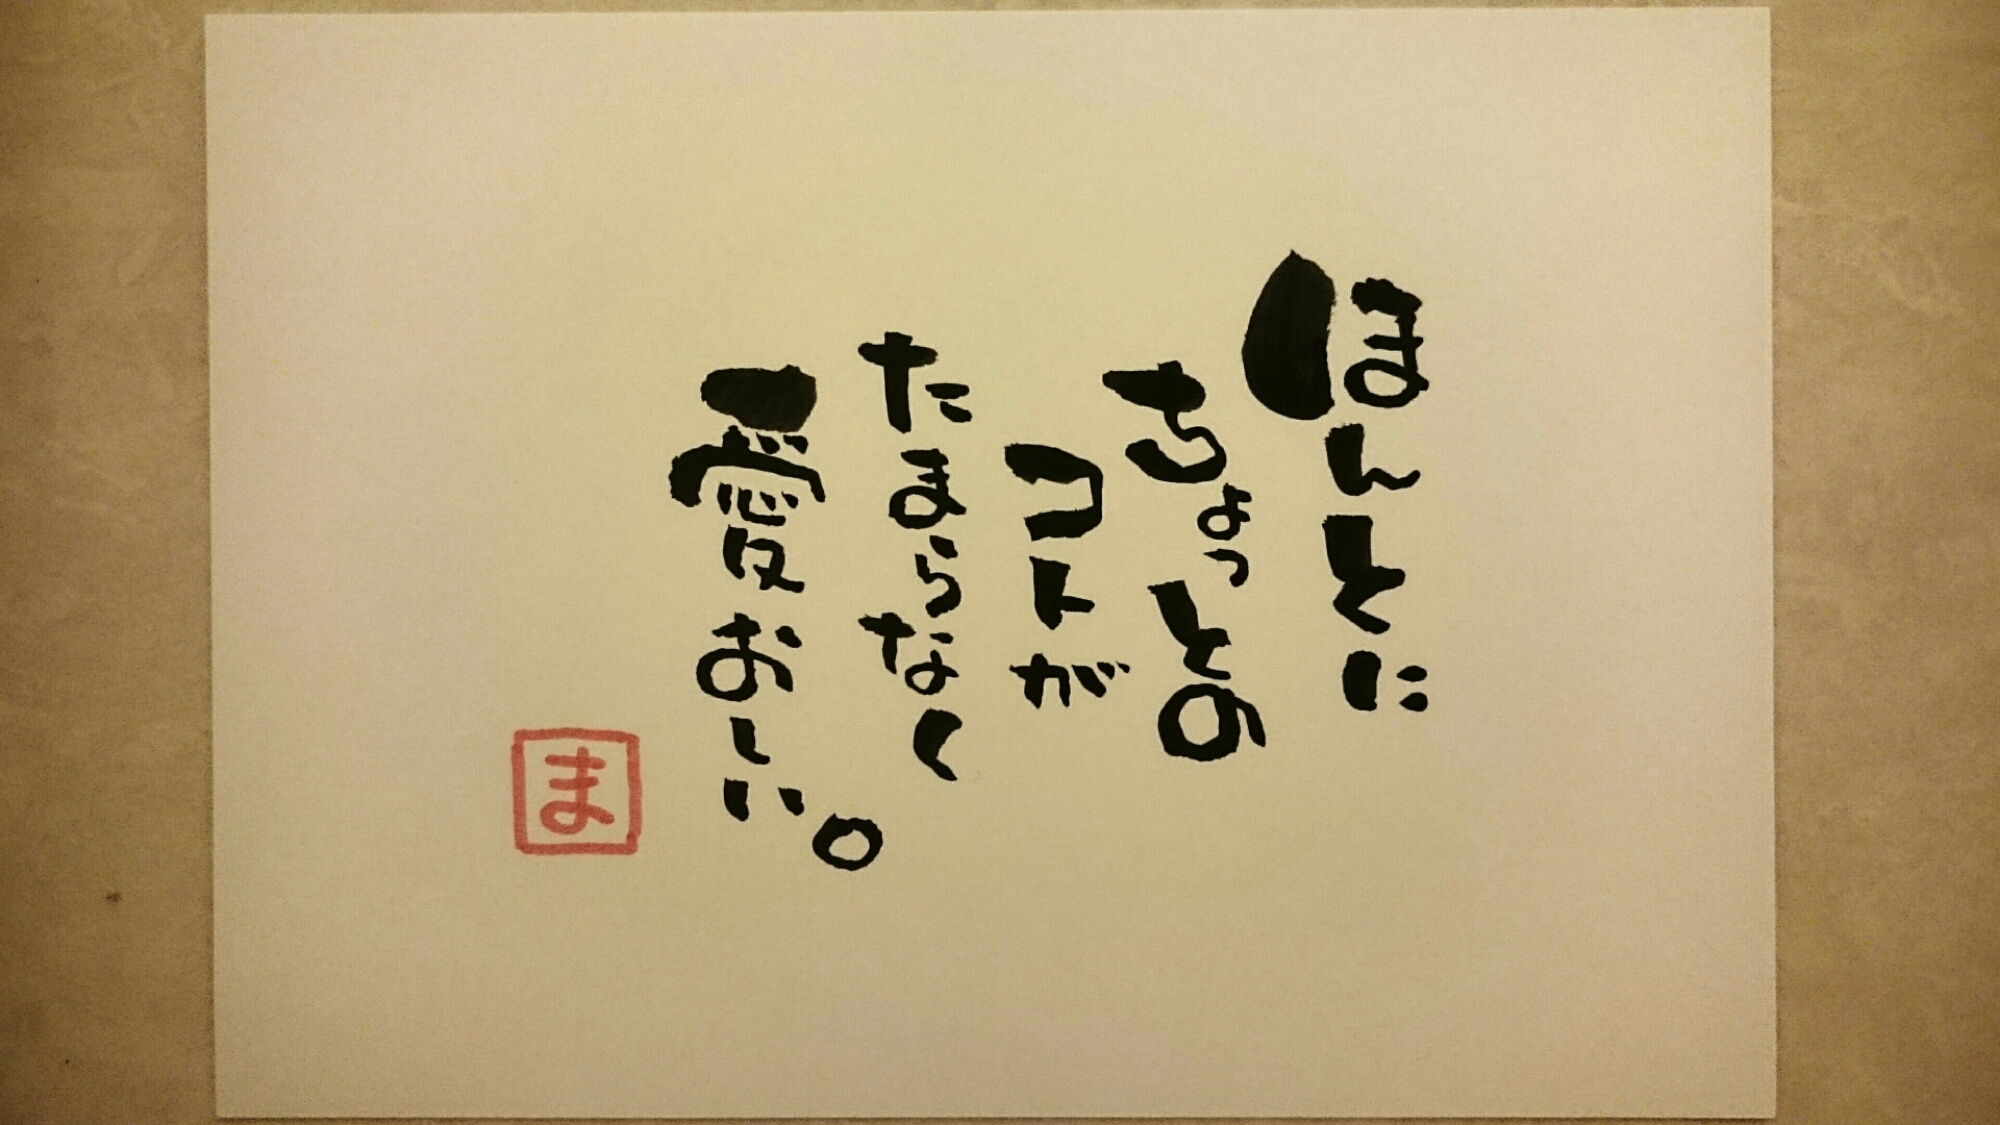 ほんとに
ちょっとの
コトが
たまらなく
愛おしい。
ま